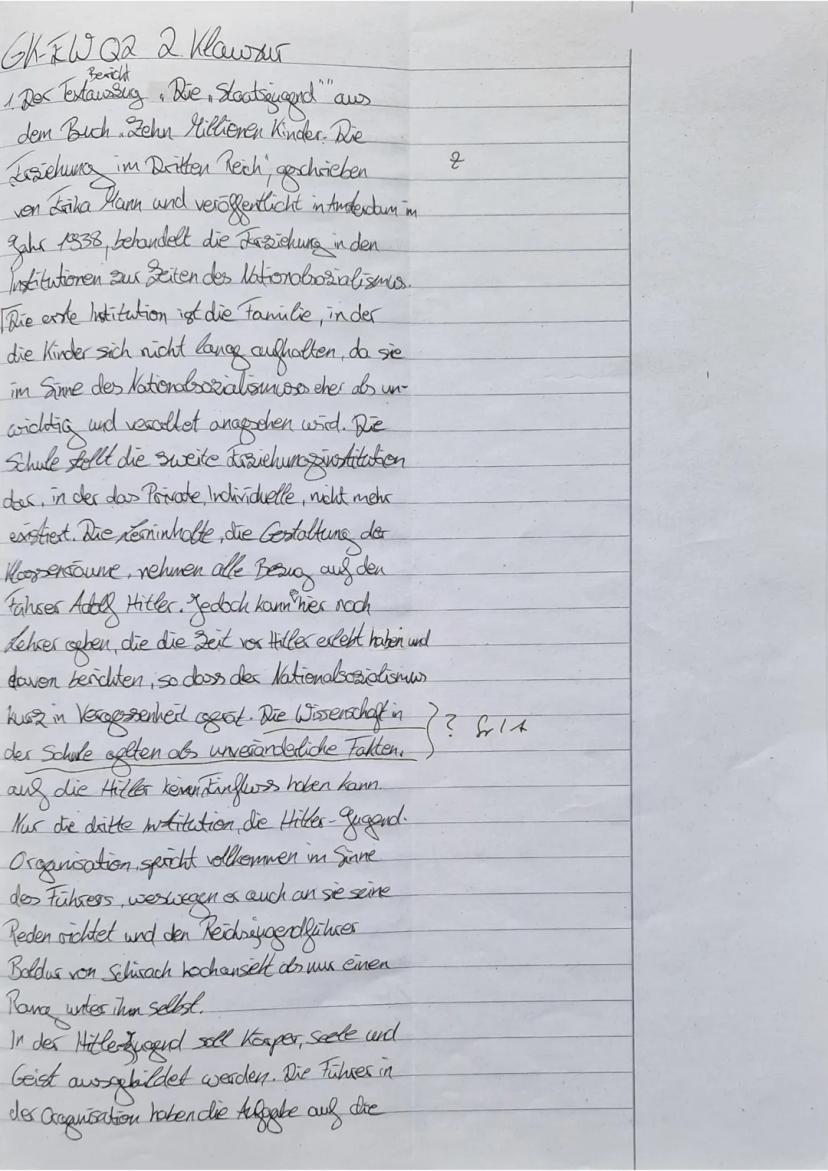 GK-EW Q2 2. Klausur
Bericht
1. Der Textauszug „Die „Staatsjugend"" aus
dem Buch „Zehn Millionen Kinder. Die
Erziehung im Dritten Reich", geschrieben
von Erika Mann und veröffentlicht in Amsterdam im
Jahr 1938, behandelt die Erziehung in den
Institutionen zur Zeiten des Nationalsozialismus.
Die erste Institution ist die Familie, in der
die Kinder sich nicht lange aufhalten, da sie
im Sinne des Nationalsozialismuses eher als un-
wichtig und veraltet angesehen wird. Die
Schule stellt die zweite Erziehungsinstitution
dar, in der das Private, Individuelle, nicht mehr
existiert. Die Lerninhalte, die Gestaltung der
Klassenräume, nehmen alle Bezug auf den
Führer Adolf Hitler. Jedoch kann es hier noch
Lehrer geben, die die Zeit vor Hitler erlebt haben und
davon berichten, so dass der Nationalsozialismus
kurz in Vergessenheit gerät. Die Wissenschaft in
der Schule gelten als unveränderliche Fakten, ?
auf die Hitler keinen Einfluss haben kann.
Nur die dritte Institution, die Hitler-Jugend-
Organisation, spricht vollkommen im Sinne
des Führers, weswegen er auch an sie seine
Reden richtet und den Reichsjugendführer
Baldur von Schirach hochansieht als nur einen
Rang unter ihm selbst.
In der Hitlerjugend soll Körper, Seele und
Geist ausgebildet werden. Die Führer in
der Organisation haben die Aufgabe auf die